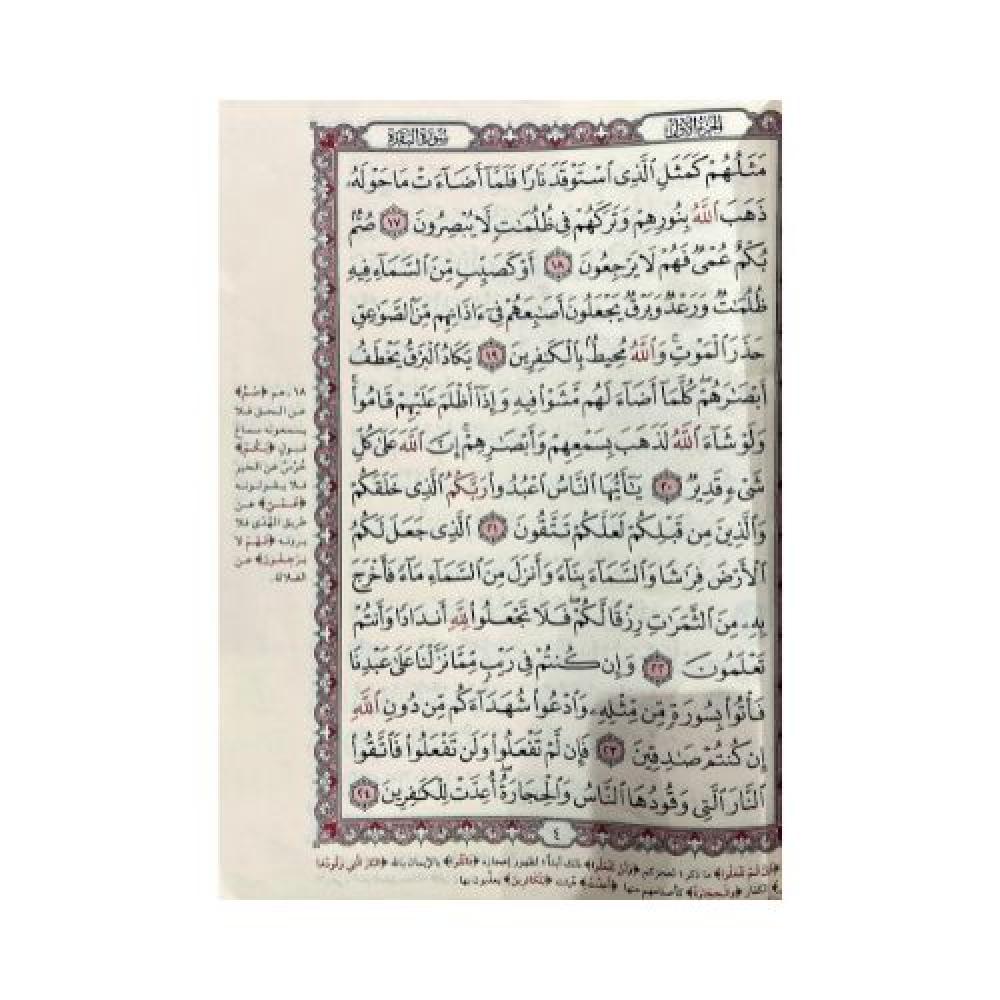 الجزء الأول
سورة البقرة
مَثَلُهُمْ كَمَثَلِ ٱلَّذِى ٱسْتَوْقَدَ نَارًا فَلَمَّآ أَضَآءَتْ مَا حَوْلَهُۥ
ذَهَبَ ٱللَّهُ بِنُورِهِمْ وَتَرَكَهُمْ فِى ظُلُمَٰتٍ لَّا يُبْصِرُونَ ١٧ صُمٌّۢ
بُكْمٌ عُمْىٌ فَهُمْ لَا يَرْجِعُونَ ١٨ أَوْ كَصَيِّبٍ مِّنَ ٱلسَّمَآءِ فِيهِ
ظُلُمَٰتٌ وَرَعْدٌ وَبَرْقٌ يَجْعَلُونَ أَصَٰبِعَهُمْ فِىٓ ءَاذَانِهِم مِّنَ ٱلصَّوَٰعِقِ
حَذَرَ ٱلْمَوْتِ ۚ وَٱللَّهُ مُحِيطٌۢ بِٱلْكَٰفِرِينَ ١٩ يَكَادُ ٱلْبَرْقُ يَخْطَفُ
أَبْصَٰرَهُمْ ۖ كُلَّمَآ أَضَآءَ لَهُم مَّشَوْا۟ فِيهِ وَإِذَآ أَظْلَمَ عَلَيْهِمْ قَامُوا۟ ۚ
وَلَوْ شَآءَ ٱللَّهُ لَذَهَبَ بِسَمْعِهِمْ وَأَبْصَٰرِهِمْ ۚ إِنَّ ٱللَّهَ عَلَىٰ كُلِّ
شَىْءٍ قَدِيرٌ ٢٠ يَٰٓأَيُّهَا ٱلنَّاسُ ٱعْبُدُوا۟ رَبَّكُمُ ٱلَّذِى خَلَقَكُمْ
وَٱلَّذِينَ مِن قَبْلِكُمْ لَعَلَّكُمْ تَتَّقُونَ ٢١ ٱلَّذِى جَعَلَ لَكُمُ
ٱلْأَرْضَ فِرَٰشًا وَٱلسَّمَآءَ بِنَآءً وَأَنزَلَ مِنَ ٱلسَّمَآءِ مَآءً فَأَخْرَجَ
بِهِۦ مِنَ ٱلثَّمَرَٰتِ رِزْقًا لَّكُمْ ۖ فَلَا تَجْعَلُوا۟ لِلَّهِ أَندَادًا وَأَنتُمْ
تَعْلَمُونَ ٢٢ وَإِن كُنتُمْ فِى رَيْبٍ مِّمَّا نَزَّلْنَا عَلَىٰ عَبْدِنَا
فَأْتُوا۟ بِسُورَةٍ مِّن مِّثْلِهِۦ وَٱدْعُوا۟ شُهَدَآءَكُم مِّن دُونِ ٱللَّهِ
إِن كُنتُمْ صَٰدِقِينَ ٢٣ فَإِن لَّمْ تَفْعَلُوا۟ وَلَن تَفْعَلُوا۟ فَٱتَّقُوا۟
ٱلنَّارَ ٱلَّتِى وَقُودُهَا ٱلنَّاسُ وَٱلْحِجَارَةُ ۖ أُعِدَّتْ لِلْكَٰفِرِينَ ٢٤
٤
١٨. هم ﴿صُمٌّ﴾
عن الحق فلا
يسمعونه سماع
قبول ﴿بُكْمٌ﴾
خُرْسٌ عن الخير
فلا يقولونه
﴿عُمْيٌ﴾ عن
طريق الهُدى فلا
يرونه ﴿فَهُمْ لا
يرجعون﴾ عن
الضلالة.
﴿فإن لم تفعلوا﴾ ما ذكر لعجزكم ﴿ولن تفعلوا﴾ ذلك أبداً لظهور إعجازه ﴿فاتقوا﴾ بالإيمان بالله ﴿النار التي وقودها
الكفار ﴿والحجارة﴾ كأصنامهم منها ﴿أعدت﴾ هُيئت ﴿للكافرين﴾ يعذبون بها.